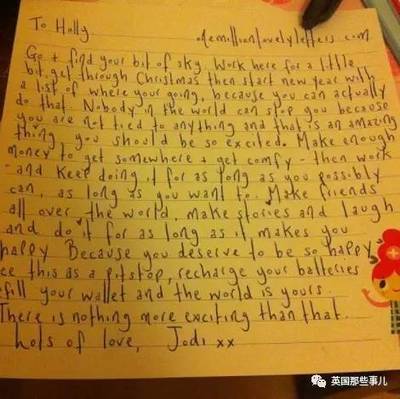 To Holly
onemillionlovelyletters.com
Go + find your bit of sky. Work here for a little
bit, get through Christmas then start new year with
a list of where your going, because you can actually
do that. Nobody in the world can stop you because
you are not tied to anything and that is an amazing
thing, you should be so excited. Make enough
money to get somewhere + get comfy - then work
- and keep doing it for as long as you possibly
can, as long as you want to. Make friends
all over the world, make stories and laugh
and do it for as long as it makes you
happy Because you deserve to be so happy
ee this as a pitstop, recharge your batteries
efill your wallet and the world is yours.
There is nothing more exciting than that.
Lots of love, Jodi xx
英国那些事儿